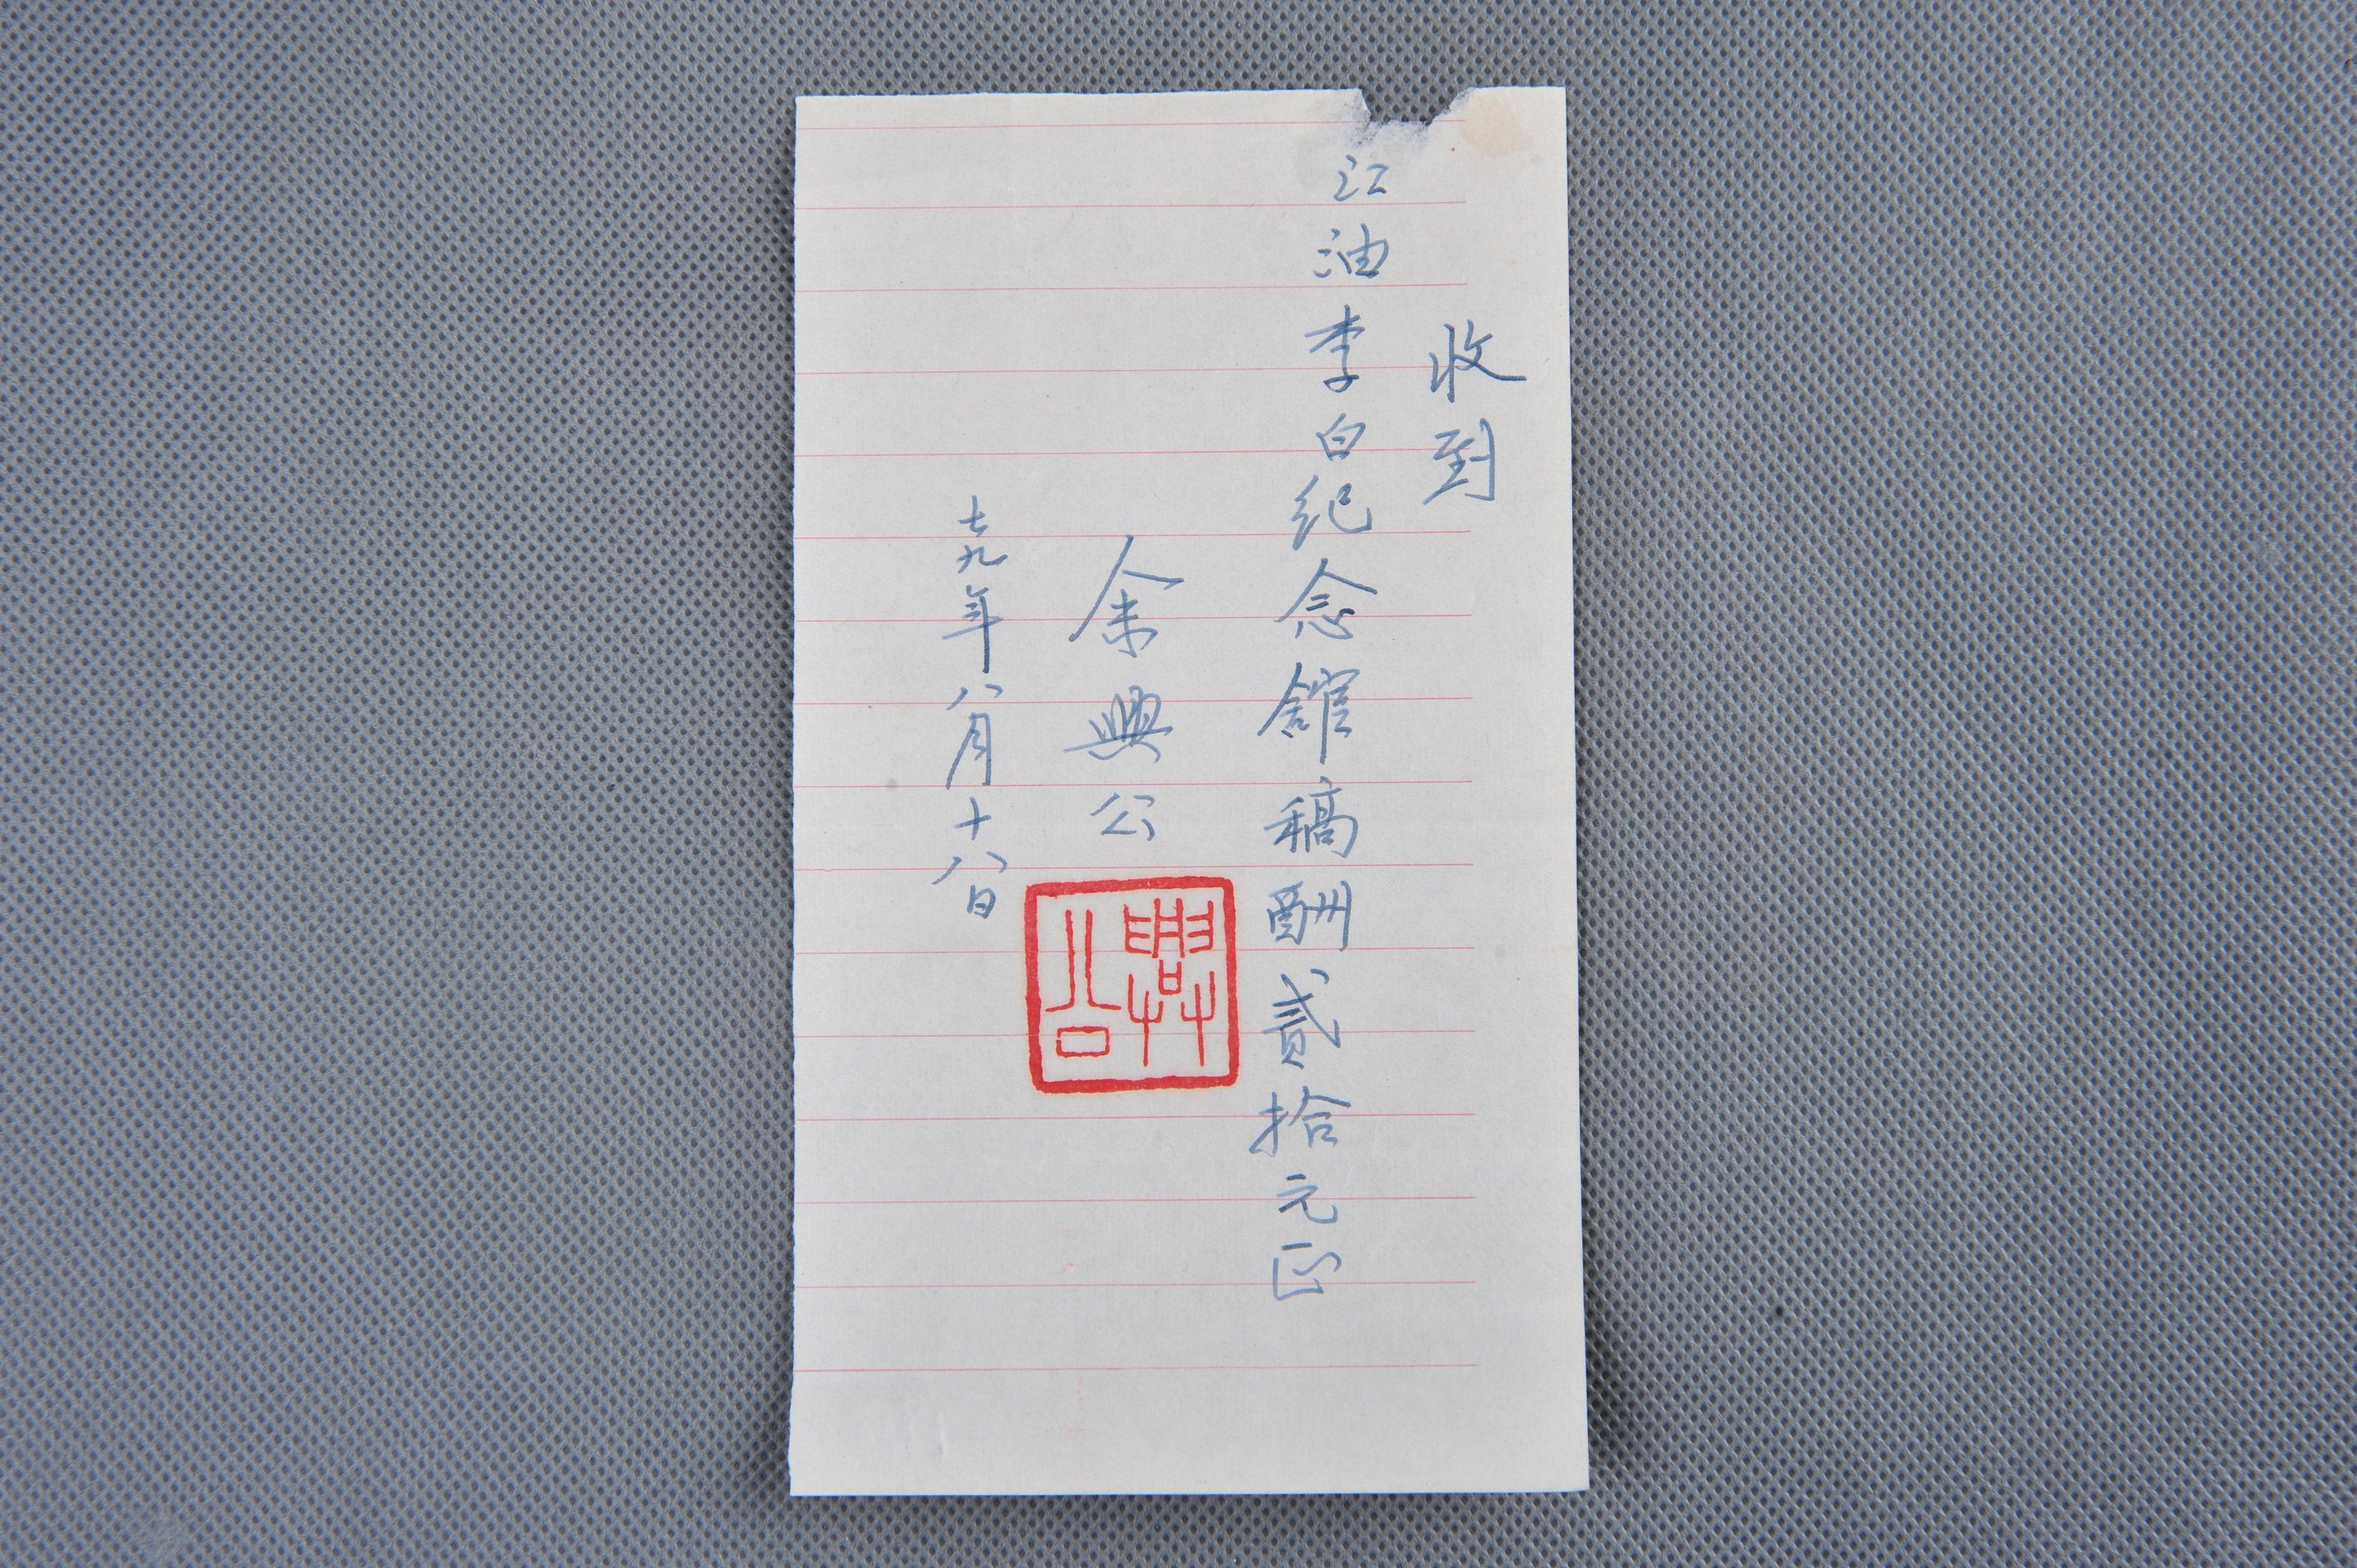 收到
江油李白纪念館稿酬貳拾元正
余興公
興公
七九年八月十八日